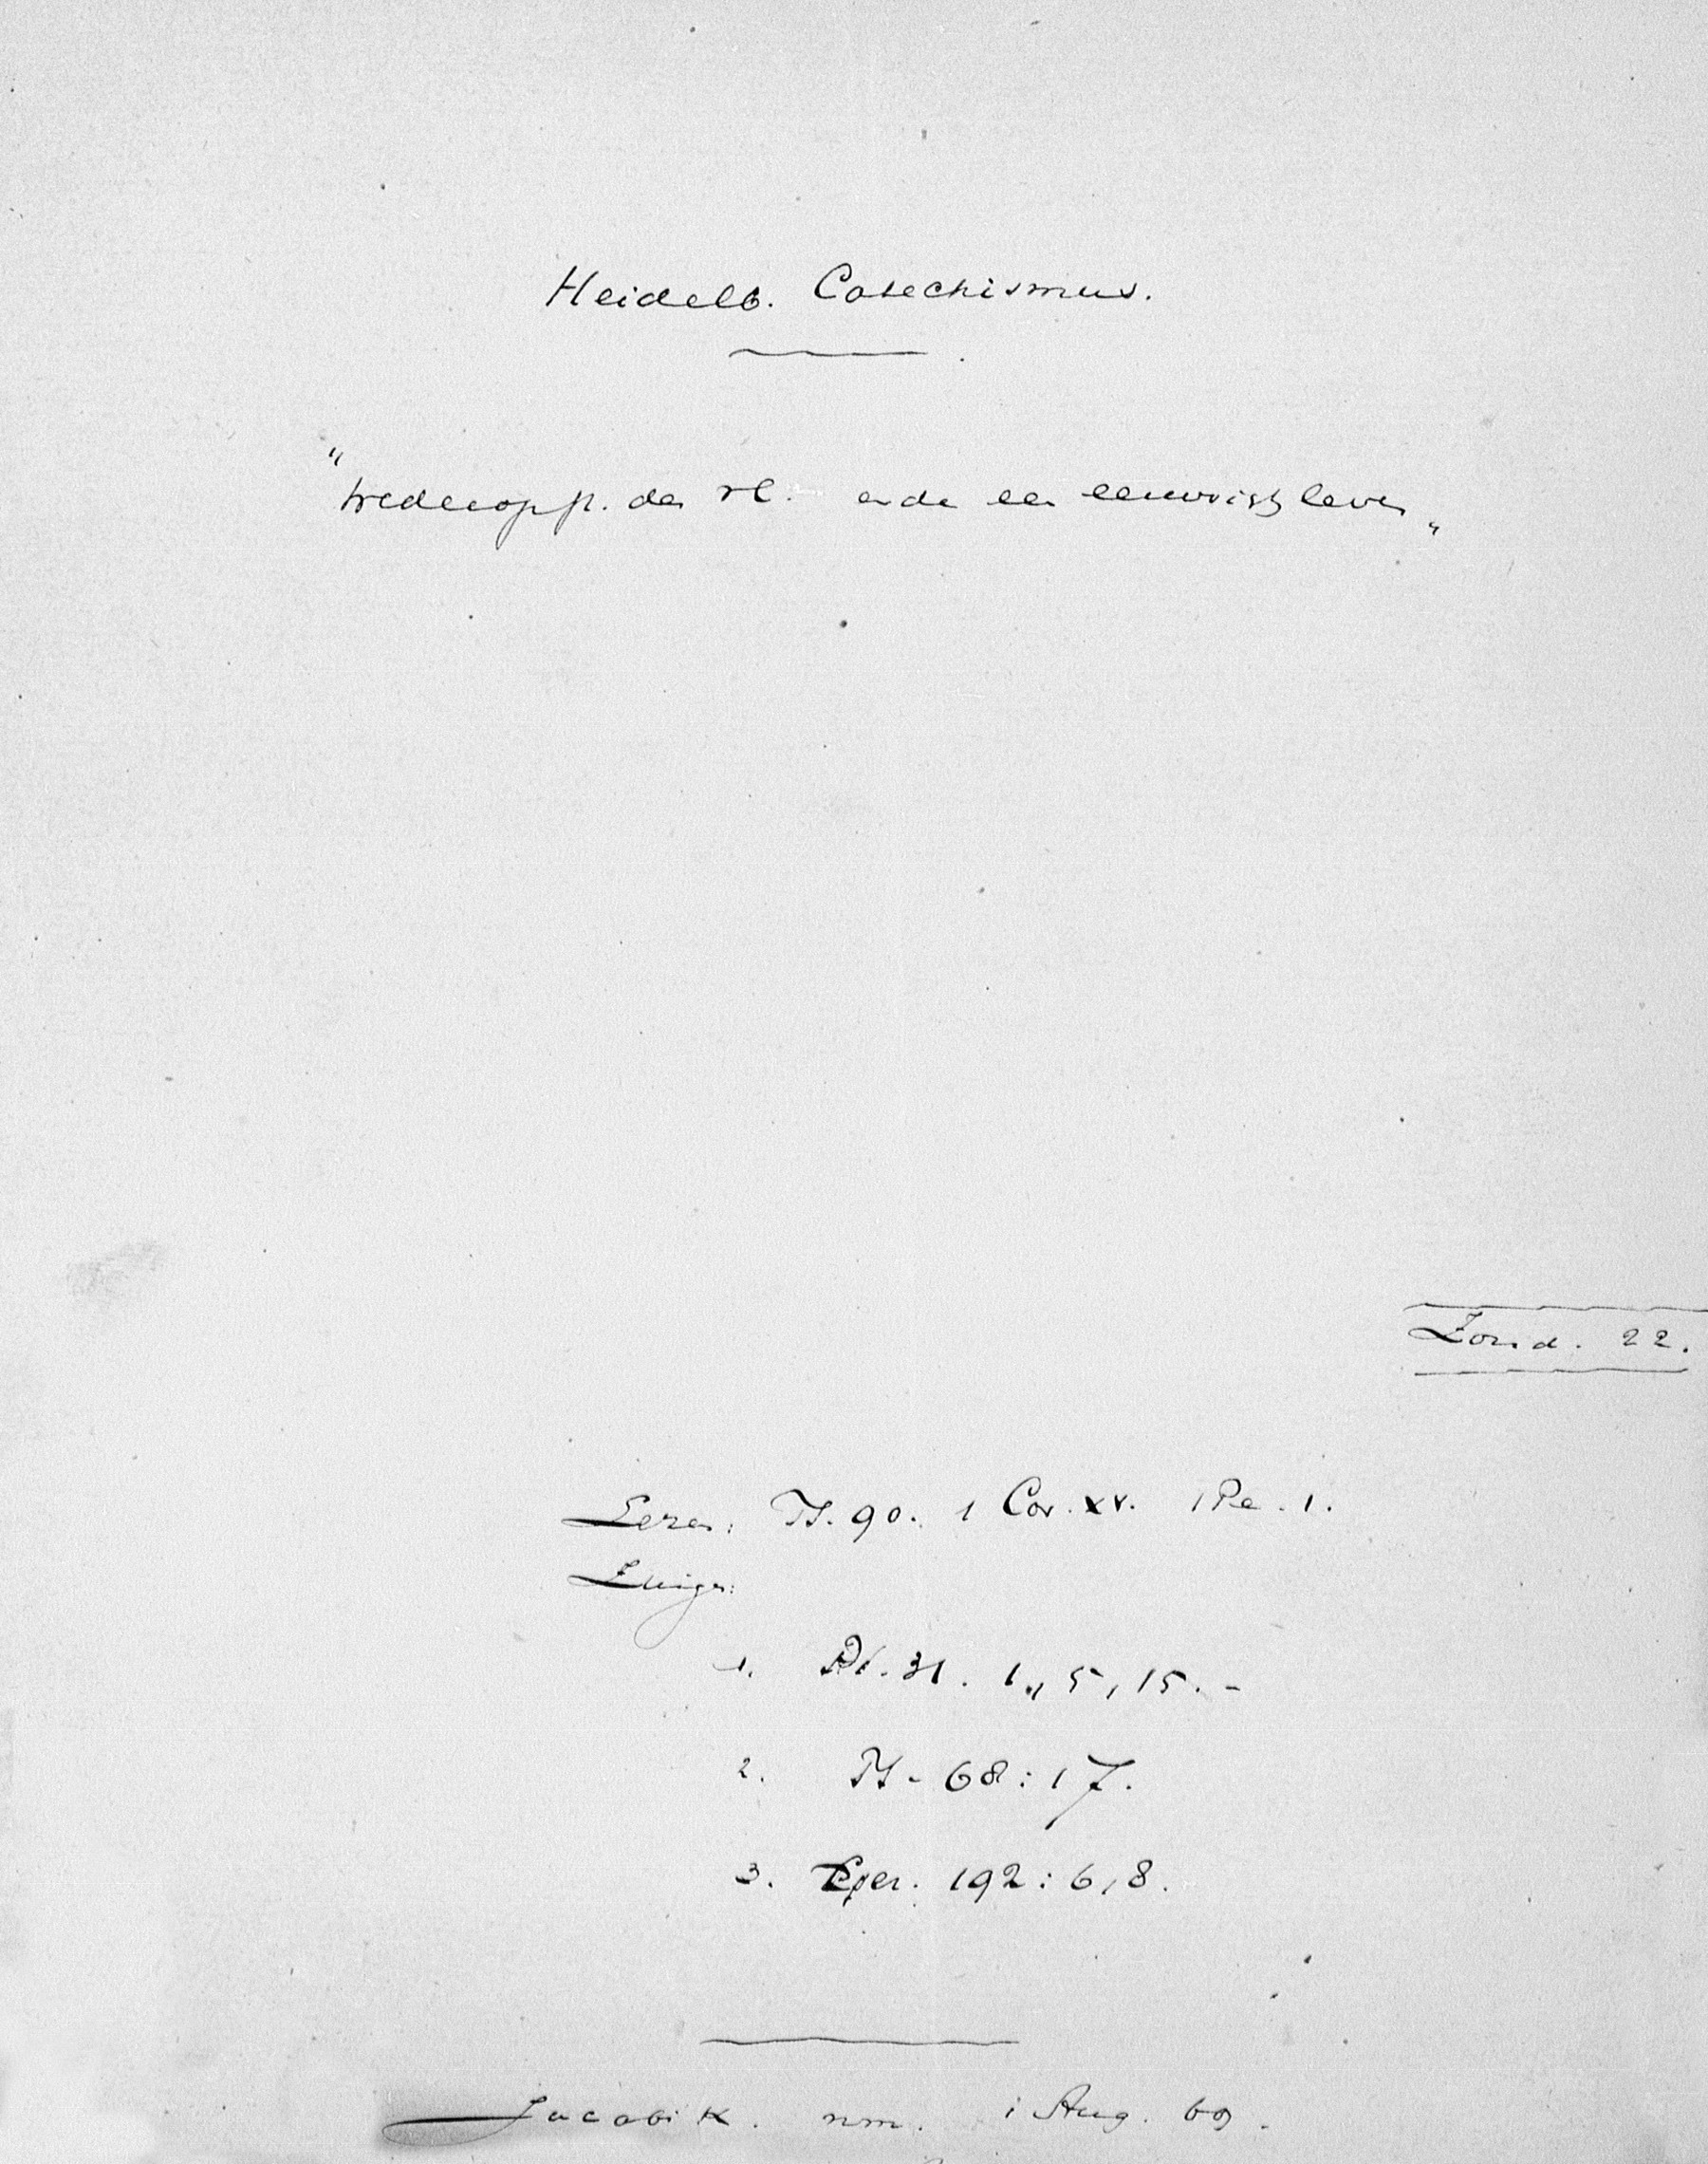 Heidelb. Catechismus.
"Wederopst. des vl. ende een eeuwigh leven"
Zond. 22.
Lezen: Ps. 90. 1 Cor. XV. 1 Pe. 1.
Zingen:
1. Ps. 31. 1, 5, 15. -
2. Ps. 68:17.
3. Gez. 192:6,8.
Jacobi K. nm. 1 Aug. 69.